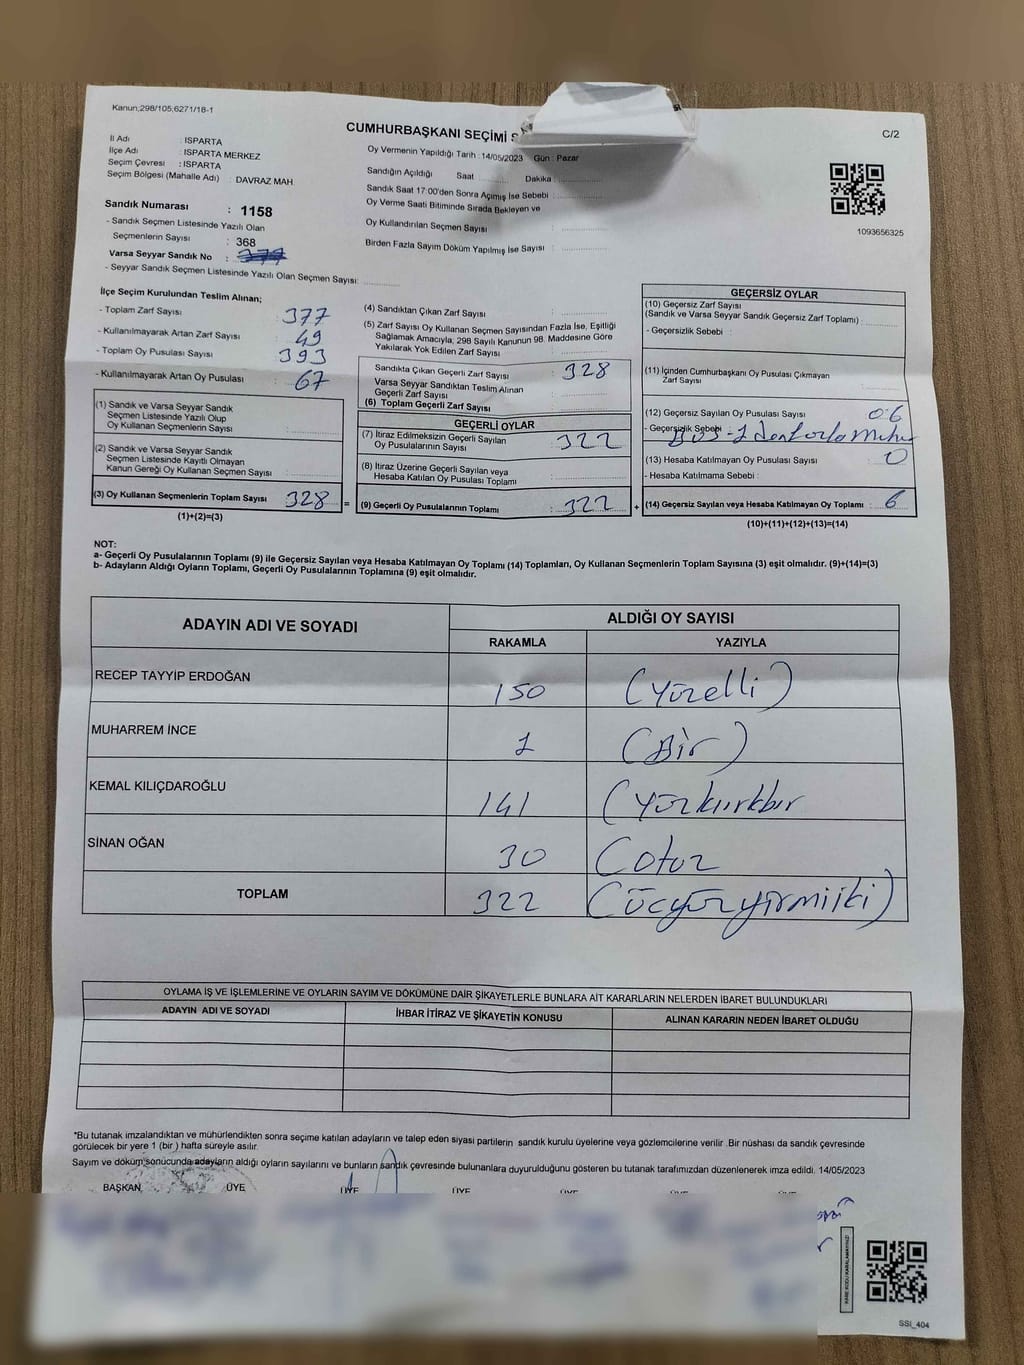 Kanun;298/105;6271/18-1
CUMHURBAŞKANI SEÇİMİ
C/2
İl Adı : ISPARTA
İlçe Adı : ISPARTA MERKEZ
Seçim Çevresi : ISPARTA
Seçim Bölgesi (Mahalle Adı) : DAVRAZ MAH.
Sandık Numarası : 1158
- Sandık Seçmen Listesinde Yazılı Olan
Seçmenlerin Sayısı : 368
Varsa Seyyar Sandık No :
- Seyyar Sandık Seçmen Listesinde Yazılı Olan Seçmen Sayısı:
Oy Vermenin Yapıldığı Tarih : 14/05/2023 Gün : Pazar
Sandığın Açıldığı Saat Dakika :
Sandık Saat 17:00'den Sonra Açımış İse Sebebi :
Oy Verme Saati Bitiminde Sırada Bekleyen ve
Oy Kullandırılan Seçmen Sayısı :
Birden Fazla Sayım Döküm Yapılmış İse Sayısı :
1093656325
İlçe Seçim Kurulundan Teslim Alınan;
- Toplam Zarf Sayısı : 377
- Kullanılmayarak Artan Zarf Sayısı : 49
- Toplam Oy Pusulası Sayısı : 393
- Kullanılmayarak Artan Oy Pusulası : 67
(1) Sandık ve Varsa Seyyar Sandık
Seçmen Listesinde Yazılı Olup
Oy Kullanan Seçmenlerin Sayısı :
(2) Sandık ve Varsa Seyyar Sandık
Seçmen Listesinde Kayıtlı Olmayan
Kanun Gereği Oy Kullanan Seçmen Sayısı :
(3) Oy Kullanan Seçmenlerin Toplam Sayısı : 328 =
(1)+(2)=(3)
(4) Sandıktan Çıkan Zarf Sayısı :
(5) Zarf Sayısı Oy Kullanan Seçmen Sayısından Fazla İse, Eşitliği
Sağlamak Amacıyla, 298 Sayılı Kanunun 98. Maddesine Göre
Yakılarak Yok Edilen Zarf Sayısı :
Sandıkta Çıkan Geçerli Zarf Sayısı : 328
Varsa Seyyar Sandıktan Teslim Alınan
Geçerli Zarf Sayısı :
(6) Toplam Geçerli Zarf Sayısı :
GEÇERLİ OYLAR
(7) İtiraz Edilmeksizin Geçerli Sayılan
Oy Pusulalarının Sayısı : 322
(8) İtiraz Üzerine Geçerli Sayılan veya
Hesaba Katılan Oy Pusulası Toplamı :
(9) Geçerli Oy Pusulalarının Toplamı : 322 +
GEÇERSİZ OYLAR
(10) Geçersiz Zarf Sayısı
(Sandık ve Varsa Seyyar Sandık Geçersiz Zarf Toplamı) :
- Geçersizlik Sebebi :
(11) İçinden Cumhurbaşkanı Oy Pusulası Çıkmayan
Zarf Sayısı :
(12) Geçersiz Sayılan Oy Pusulası Sayısı : 06
- Geçersizlik Sebebi :
(13) Hesaba Katılmayan Oy Pusulası Sayısı : 0
- Hesaba Katılmama Sebebi :
(14) Geçersiz Sayılan veya Hesaba Katılmayan Oy Toplamı : 6
(10)+(11)+(12)+(13)=(14)
NOT:
a- Geçerli Oy Pusulalarının Toplamı (9) ile Geçersiz Sayılan veya Hesaba Katılmayan Oy Toplamı (14) Toplamları, Oy Kullanan Seçmenlerin Toplam Sayısına (3) eşit olmalıdır. (9)+(14)=(3)
b- Adayların Aldığı Oyların Toplamı, Geçerli Oy Pusulalarının Toplamına (9) eşit olmalıdır.
ADAYIN ADI VE SOYADI
ALDIĞI OY SAYISI
RAKAMLA YAZIYLA
RECEP TAYYİP ERDOĞAN 150 (Yüzelli)
MUHARREM İNCE 1 (Bir)
KEMAL KILIÇDAROĞLU 141 (Yüzkırkbır
SİNAN OĞAN 30 (otuz
TOPLAM 322 (Üçyüzyirmiiki)
OYLAMA İŞ VE İŞLEMLERİNE VE OYLARIN SAYIM VE DÖKÜMÜNE DAİR ŞİKAYETLERLE BUNLARA AİT KARARLARIN NELERDEN İBARET BULUNDUKLARI
ADAYIN ADI VE SOYADI İHBAR İTİRAZ VE ŞİKAYETİN KONUSU ALINAN KARARIN NEDEN İBARET OLDUĞU
*Bu tutanak imzalandıktan ve mühürlendikten sonra seçime katılan adayların ve talep eden siyasi partilerin sandık kurulu üyelerine veya gözlemcilerine verilir .Bir nüshası da sandık çevresinde
görülecek bir yere 1 (bir ) hafta süreyle asılır.
Sayım ve döküm sonucunda adayların aldığı oyların sayılarını ve bunların sandık çevresinde bulunanlara duyurulduğunu gösteren bu tutanak tarafımızdan düzenlenerek imza edildi. 14/05/2023
BAŞKAN ÜYE ÜYE ÜYE ÜYE ÜYE ÜYE
KARE KODU KARALAMAYINIZ!
SSI_404